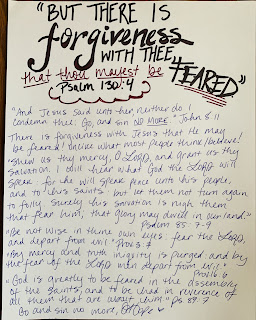 "BUT THERE IS
forgiveness
WITH THEE,
that thou mayest be
"FEARED"
Psalm 130:4
"And Jesus said unto her, neither do I
condemn thee: Go, and sin NO MORE." John 8:11
There is forgiveness with Jesus that He may
be feared! Unlike what most people think/believe!
"Shew us thy mercy, O LORD, and grant us thy
salvation. I will hear what God the LORD will
speak: for he will speak peace unto his people,
and to his saints: but let them not turn again
to folly. Surely his salvation is nigh them
that fear him; that glory may dwell in our land."
Psalm 85:7-9
"Be not wise in thine own eyes: fear the LORD,
and depart from evil." Prov 3:7
"By mercy and truth iniquity is purged: and by
the fear of the LORD men depart from evil."
Prov 16:6
"God is greatly to be feared in the assembly
of the saints, and to be had in reverence of
all them that are about him." Ps 89:7
Go and sin no more,